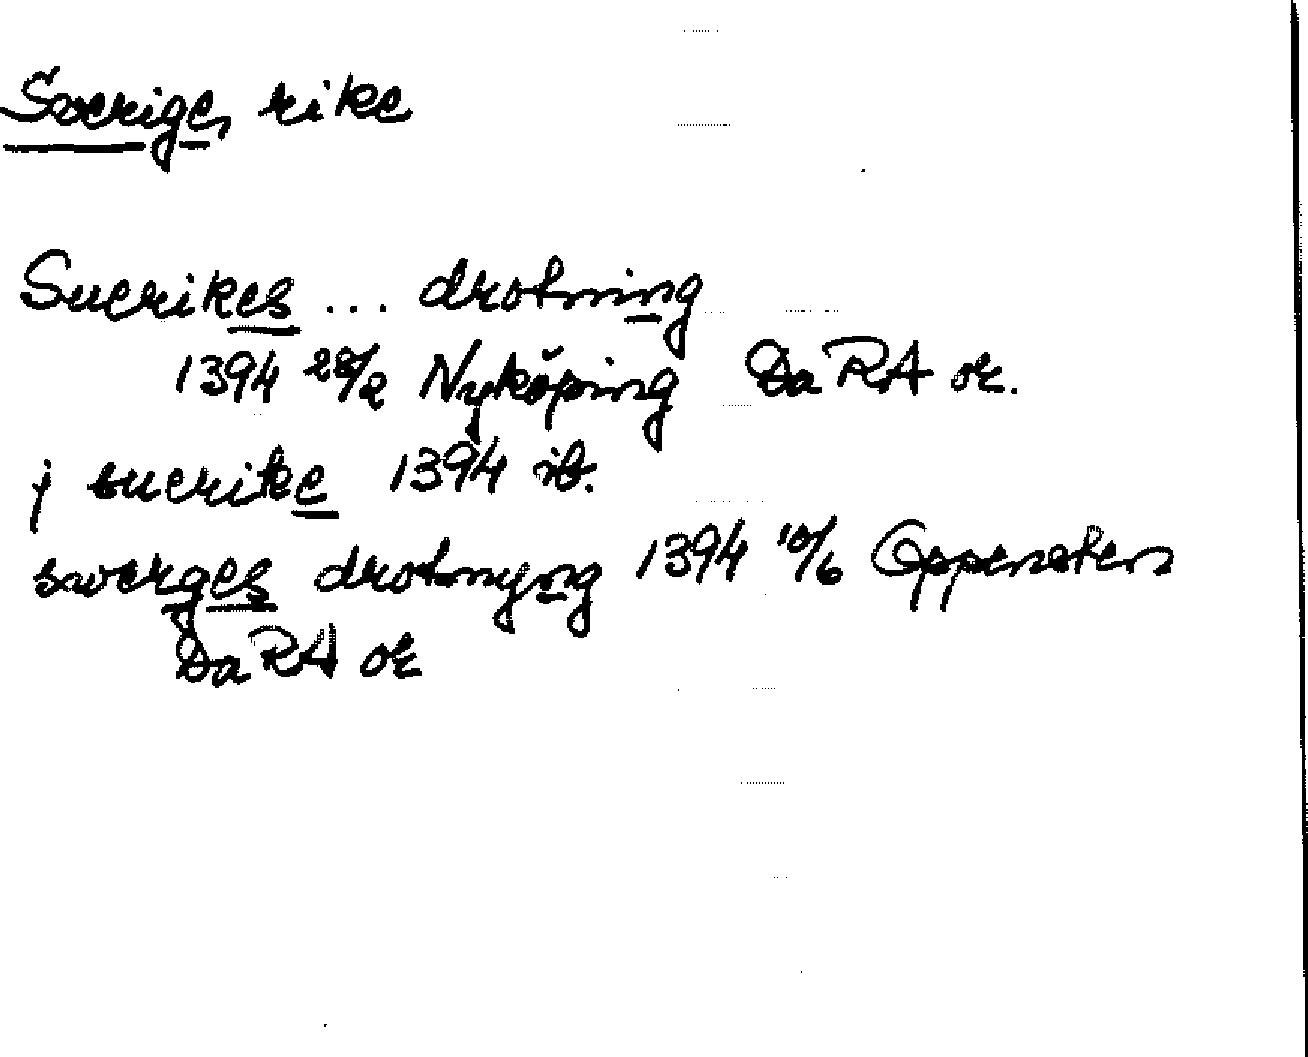 Sveriges rike
Suerikes ... drotning
1394 28/2 Nyköping DaRA or.
j suerike 1394 ib.
swerges drotnyng 1394 10/6 Oppensten
DaRA or